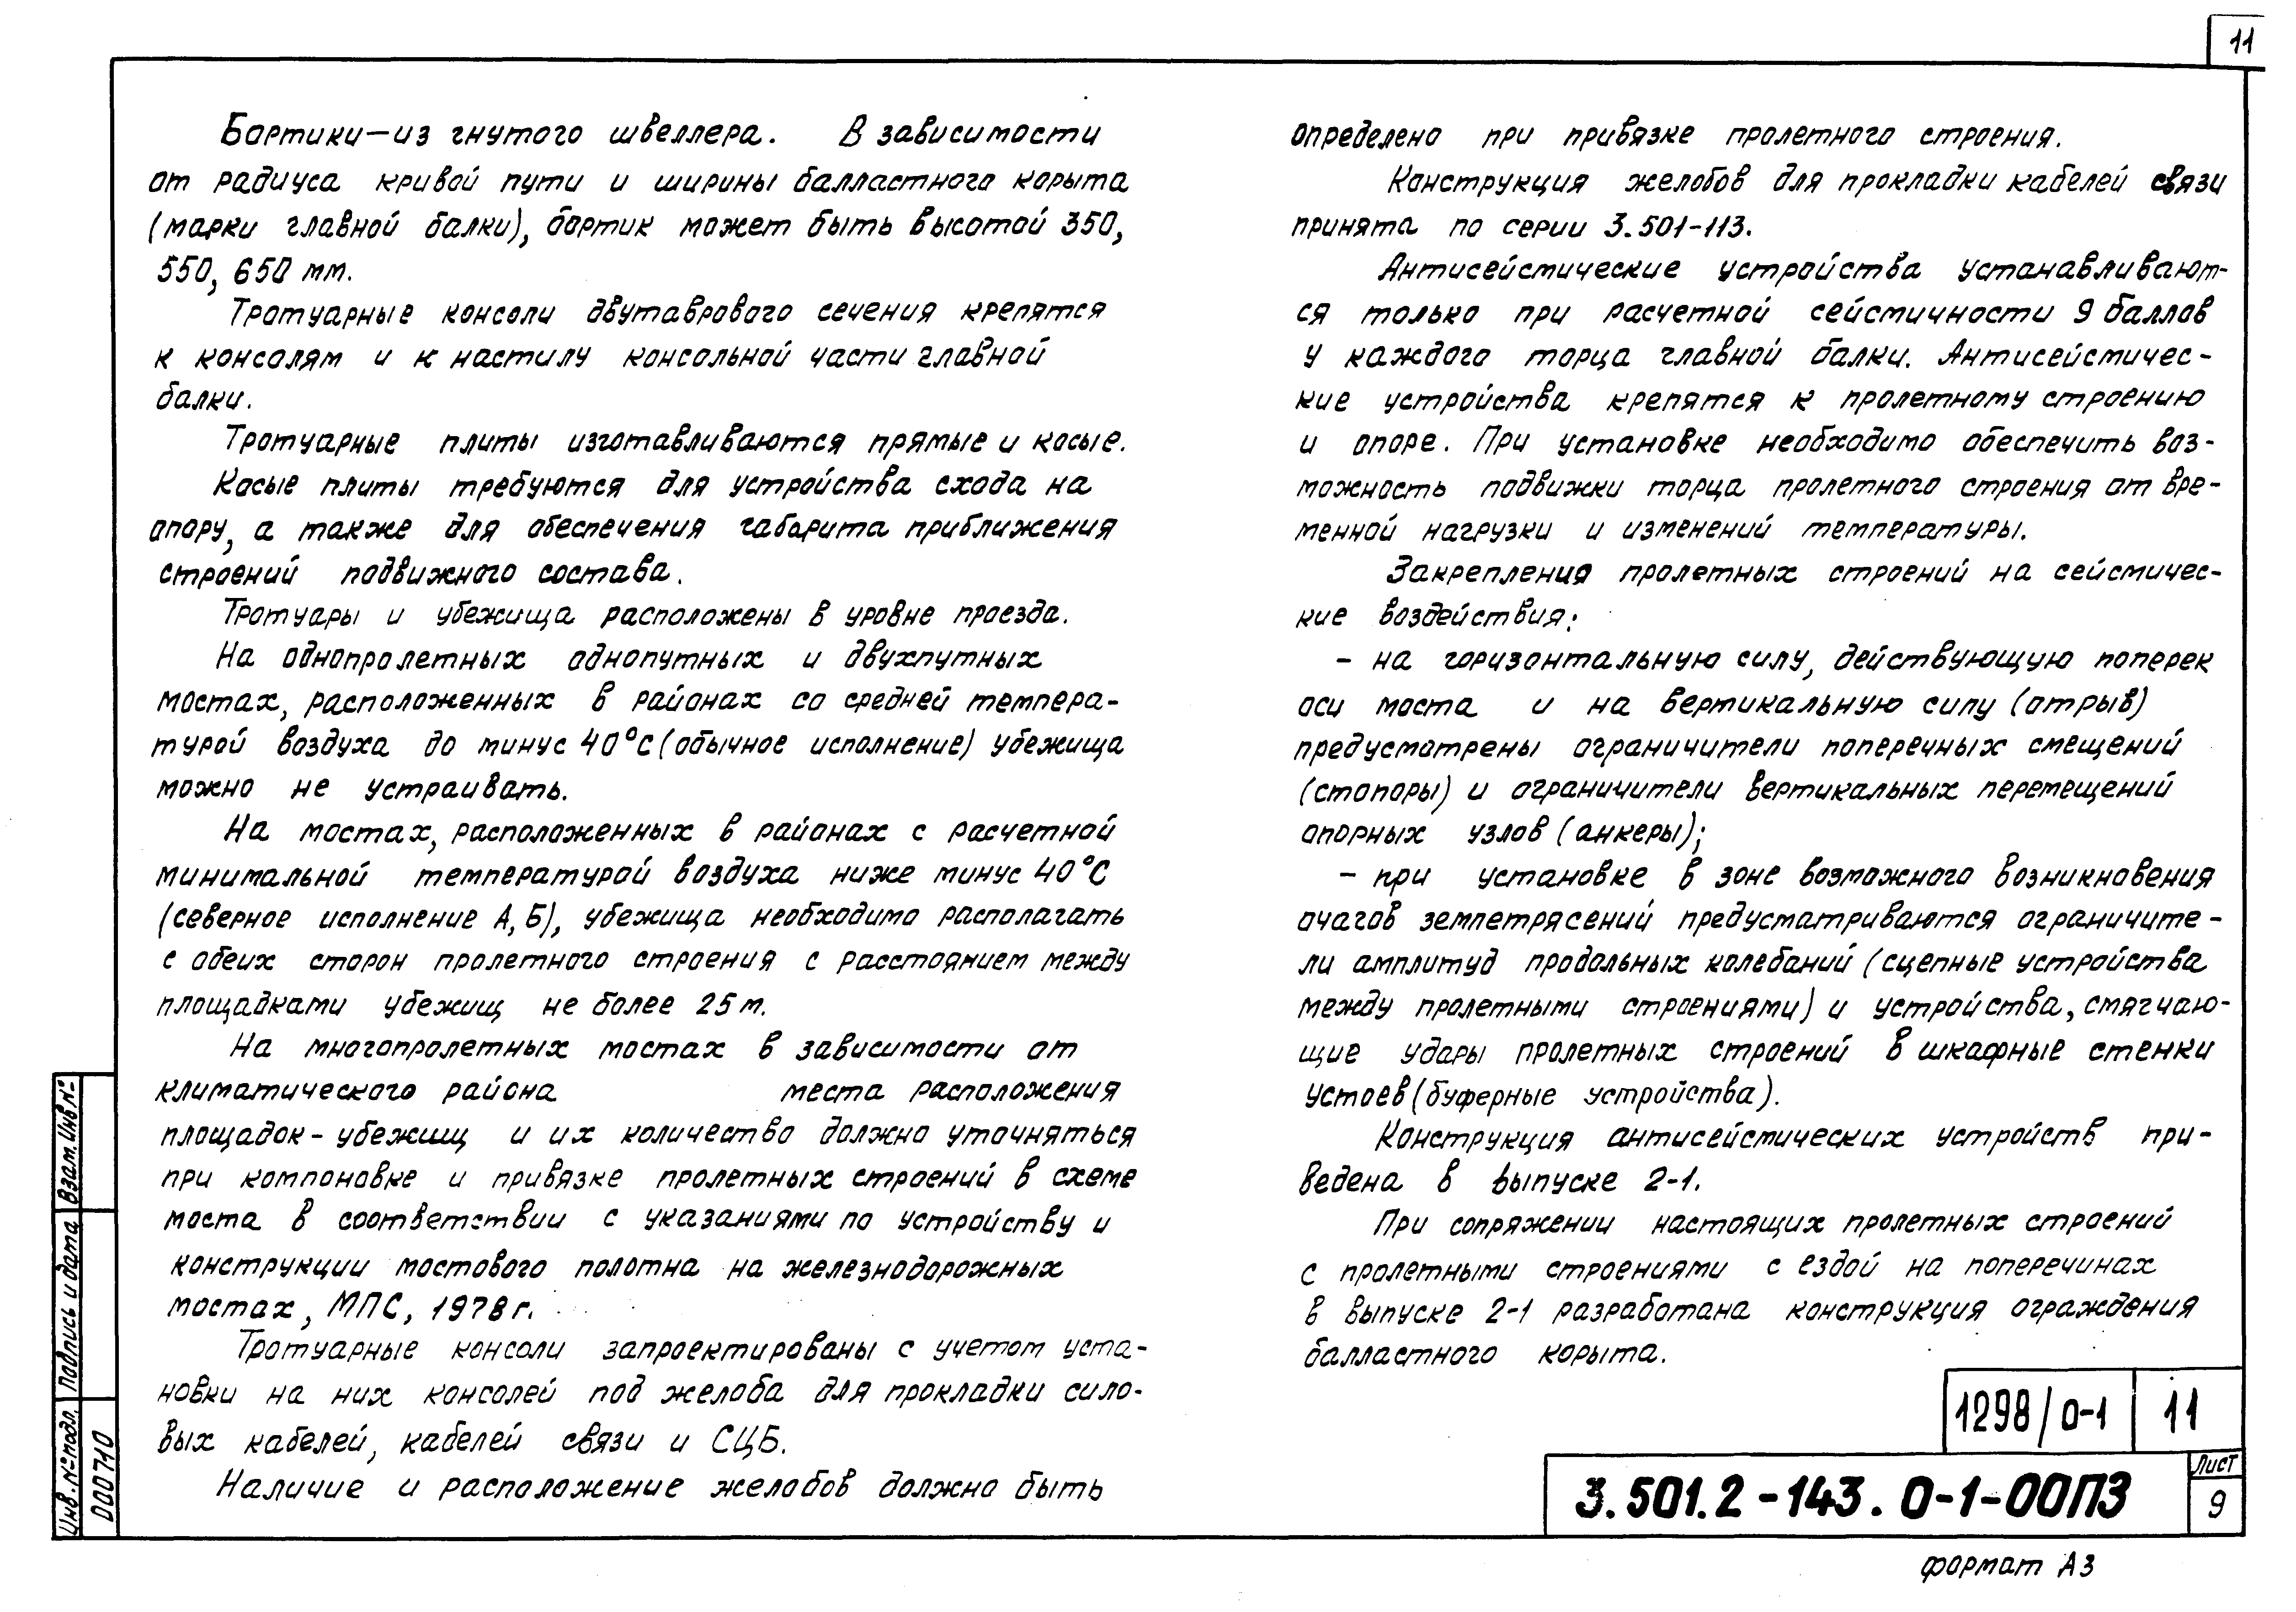 11
Бортики — из гнутого швеллера. В зависимости
от радиуса кривой пути и ширины балластного корыта
(марки главной балки), бортик может быть высотой 350,
550, 650 мм.
Тротуарные консоли двутаврового сечения крепятся
к консолям и к настилу консольной части главной
балки.
Тротуарные плиты изготавливаются прямые и косые.
Косые плиты требуются для устройства схода на
опору, а также для обеспечения габарита приближения
строений подвижного состава.
Тротуары и убежища расположены в уровне проезда.
На однопролетных однопутных и двухпутных
мостах, расположенных в районах со средней темпера-
турой воздуха до минус 40°С (обычное исполнение) убежища
можно не устраивать.
На мостах, расположенных в районах с расчетной
минимальной температурой воздуха ниже минус 40°С
(северное исполнение А, Б), убежища необходимо располагать
с обеих сторон пролетного строения с расстоянием между
площадками убежищ не более 25 м.
На многопролетных мостах в зависимости от
климатического района места расположения
площадок - убежищ и их количество должно уточняться
при компоновке и привязке пролетных строений в схеме
моста в соответствии с указаниями по устройству и
конструкции мостового полотна на железнодорожных
мостах, МПС, 1978 г.
Тротуарные консоли запроектированы с учетом уста-
новки на них консолей под желоба для прокладки сило-
вых кабелей, кабелей связи и СЦБ.
Наличие и расположение желобов должно быть
определено при привязке пролетного строения.
Конструкция желобов для прокладки кабелей связи
принята по серии 3.501-113.
Антисейсмические устройства устанавливают-
ся только при расчетной сейсмичности 9 баллов
у каждого торца главной балки. Антисейсмичес-
кие устройства крепятся к пролетному строению
и опоре. При установке необходимо обеспечить воз-
можность подвижки торца пролетного строения от вре-
менной нагрузки и изменений температуры.
Закрепления пролетных строений на сейсмичес-
кие воздействия:
- на горизонтальную силу, действующую поперек
оси моста и на вертикальную силу (отрыв)
предусмотрены ограничители поперечных смещений
(стопоры) и ограничители вертикальных перемещений
опорных узлов (анкеры);
- при установке в зоне возможного возникновения
очагов землетрясений предусматриваются ограничите-
ли амплитуд продольных колебаний (сцепные устройства
между пролетными строениями) и устройства, смягчаю-
щие удары пролетных строений в шкафные стенки
устоев (буферные устройства).
Конструкция антисейсмических устройств при-
ведена в выпуске 2-1.
При сопряжении настоящих пролетных строений
с пролетными строениями с ездой на поперечинах
в выпуске 2-1 разработана конструкция ограждения
балластного корыта.
1298/0-1 11
3.501.2-143.0-1-00ПЗ
Лист
9
Формат А3
Взам. Инв №
Подпись и дата
Инв. № подл.
D00710